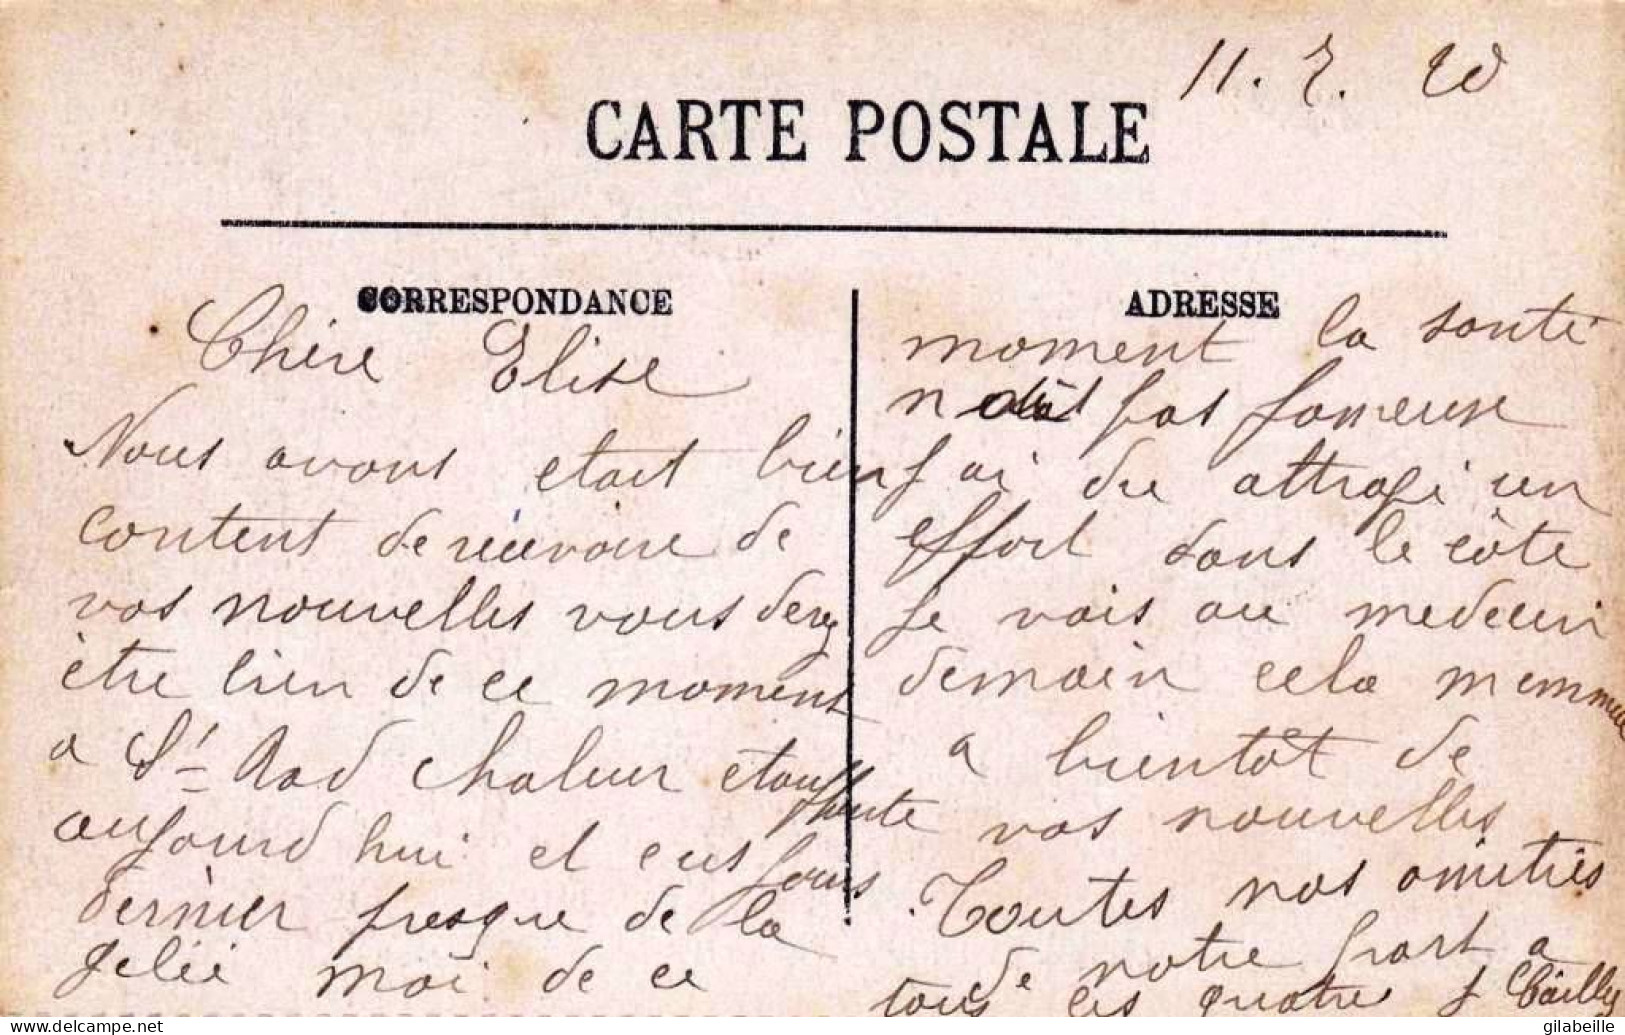 11. 7. 20
CARTE POSTALE
CORRESPONDANCE
Chère Elise
Nous avons etait bien
content de recevoire de
vos nouvelles vous devez
être bien de ce moment
a St Rad chaleur etouffante
aujourd hui et ces jours
dernier presque de la
gelée moi de ce
ADRESSE
moment la santé
n pas fameuse
j ai du attrapé un
effort dans le côte
je vais au medecin
demain cela m emmue
a bientôt de
vos nouvelles
Toutes nos amitiés
de notre part a
tous les quatre J Bailly
delcampe.net
gilabeille